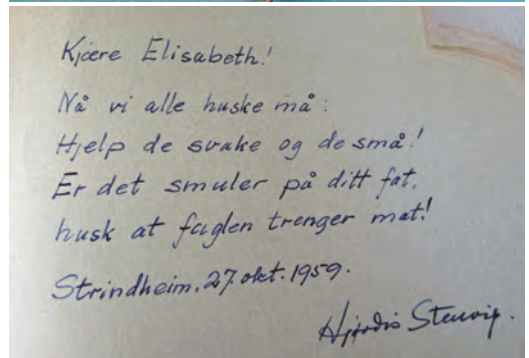 Kjære Elisabeth!
Nå vi alle huske må:
Hjelp de svake og de små!
Er det smuler på ditt fat,
husk at fuglen trenger mat!
Strindheim, 27. okt. 1959.
Hjørdis